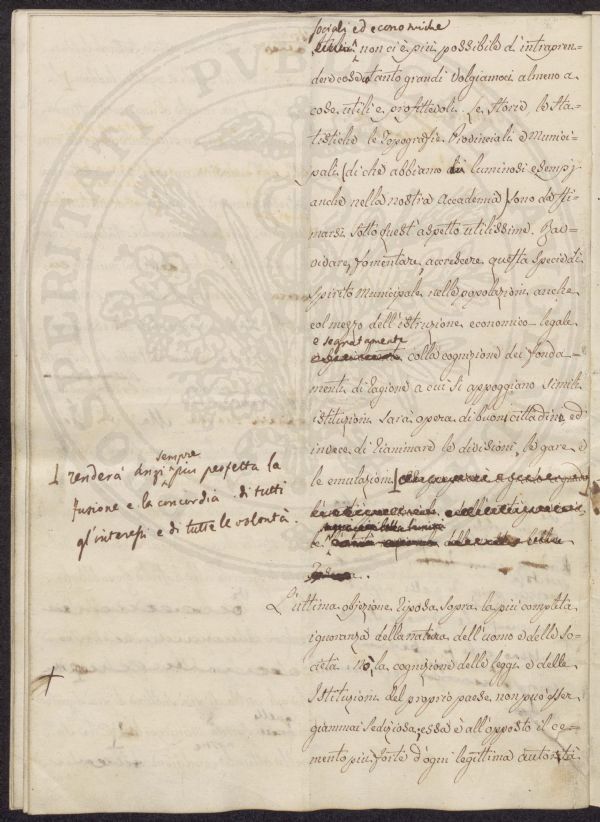 sociali ed economiche
non ci è più possibile d'intrapren=
dere cose tanto grandi volgiamoci almeno a
cose utili e profittevoli. Le Storie, le Sta=
tistiche le Topografie Provinciali e Munici=
pali (di che abbiamo luminosi esempj
anche nella nostra Accademia) sono da sti=
marsi sotto quest'aspetto utilissime. Rav=
vivare, fomentare, accrescere questa specie di
spirito Municipale nelle popolazioni anche
col mezzo dell'istruzione economico-legale
e segnatamente
colla cognizione dei fonda=
menti di ragione a cui si appoggiano simili
istituzioni sarà opera di buon cittadino ed
invece di rianimare le divisioni, le gare e
le emulazioni
sempre
renderà anzi più perfetta la
fusione e la concordia di tutti
gl'interessi e di tutte le volontà.
L'ultima objezione riposa sopra la più completa
ignoranza della natura dell'uomo e delle So=
cietà. No, la cognizione delle leggi e delle
Istituzioni del proprio paese non può esser
giammai sediziosa; essa è all'opposto il ce=
mento più forte d'ogni legittima autorità
POSTERITATI PVBLICAE